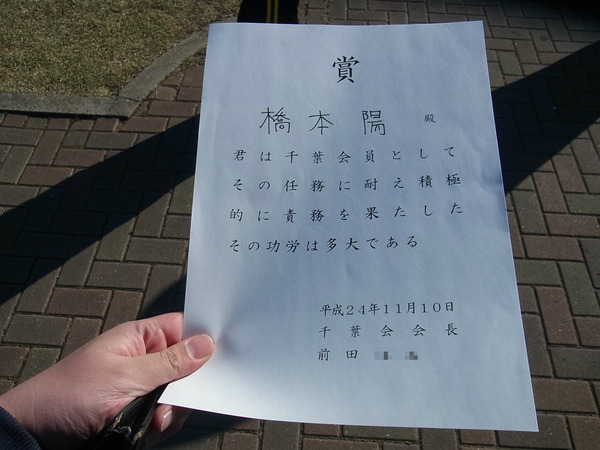 賞
橋本陽 殿
君は千葉会員として
その任務に耐え積極
的に責務を果たした
その功労は多大である
平成24年11月10日
千葉会会長
前田